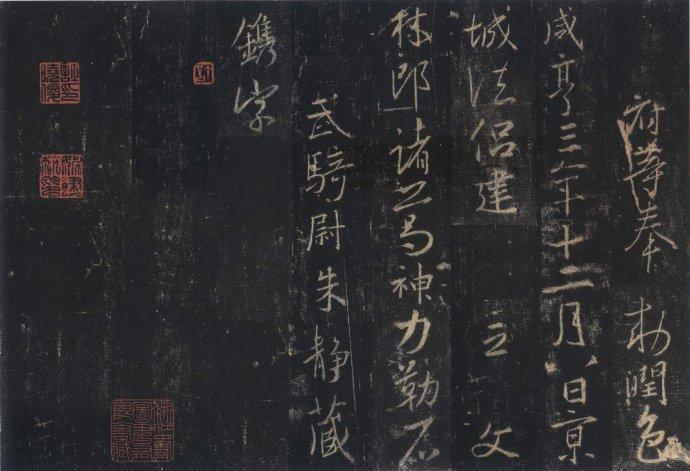 府等奉 勅潤色
咸亨三年十二月八日京
城法侣建 立 文
林郎諸葛神力勒石
武騎尉朱静藏
鐫字